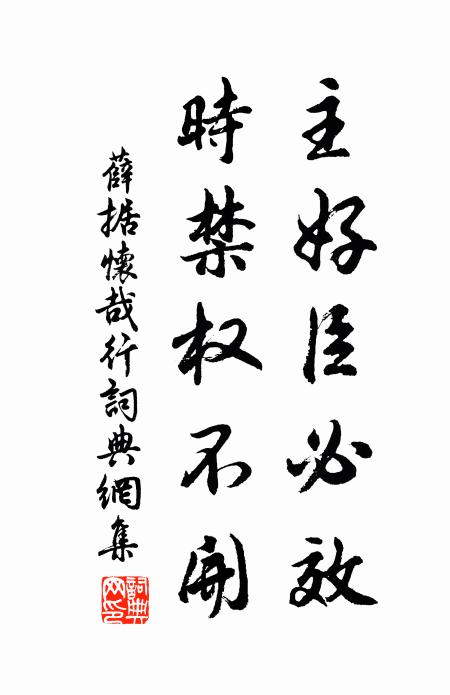 主好臣必效
時禁权不開
薛据懷哉行詞典網集
詞典網印